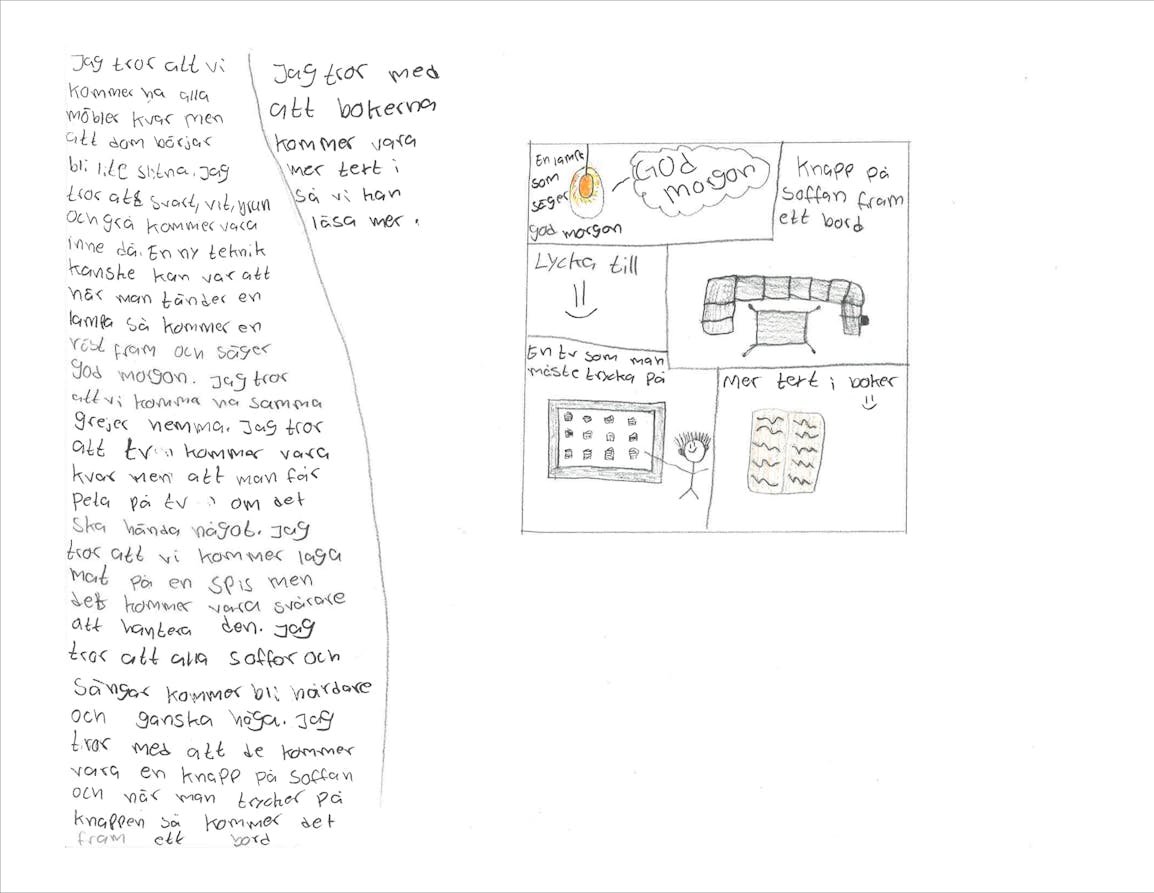 Jag tror att vi
kommer ha alla
möbler kvar men
att dom börjar
bli lite slitna. Jag
tror att svart, vit, grun
och grå kommer vara
inne då. En ny teknik
kanske kan var att
när man tänder en
lampa så kommer en
röst fram och säger
god morgon. Jag tror
att vi komma ha samma
grejer hemma. Jag tror
att tv:n kommer vara
kvar men att man får
pela på tv:n om det
ska hända något. Jag
tror att vi kommer laga
mat på en spis men
det kommer vara svårare
att hantera den. Jag
tror att alla soffor och
sängar kommer bli hårdare
och ganska höga. Jag
tror med att de kommer
vara en knapp på soffan
och när man trycker på
knappen så kommer det
fram ett bord
Jag tror med
att bokerna
kommer vara
mer text i
så vi kan
läsa mer.
En lampa
som
säger
god morgon
GOD
morgon
Knapp på
soffan fram
ett bord
Lycka till
En tv som man
måste trycka på
Mer text i boker